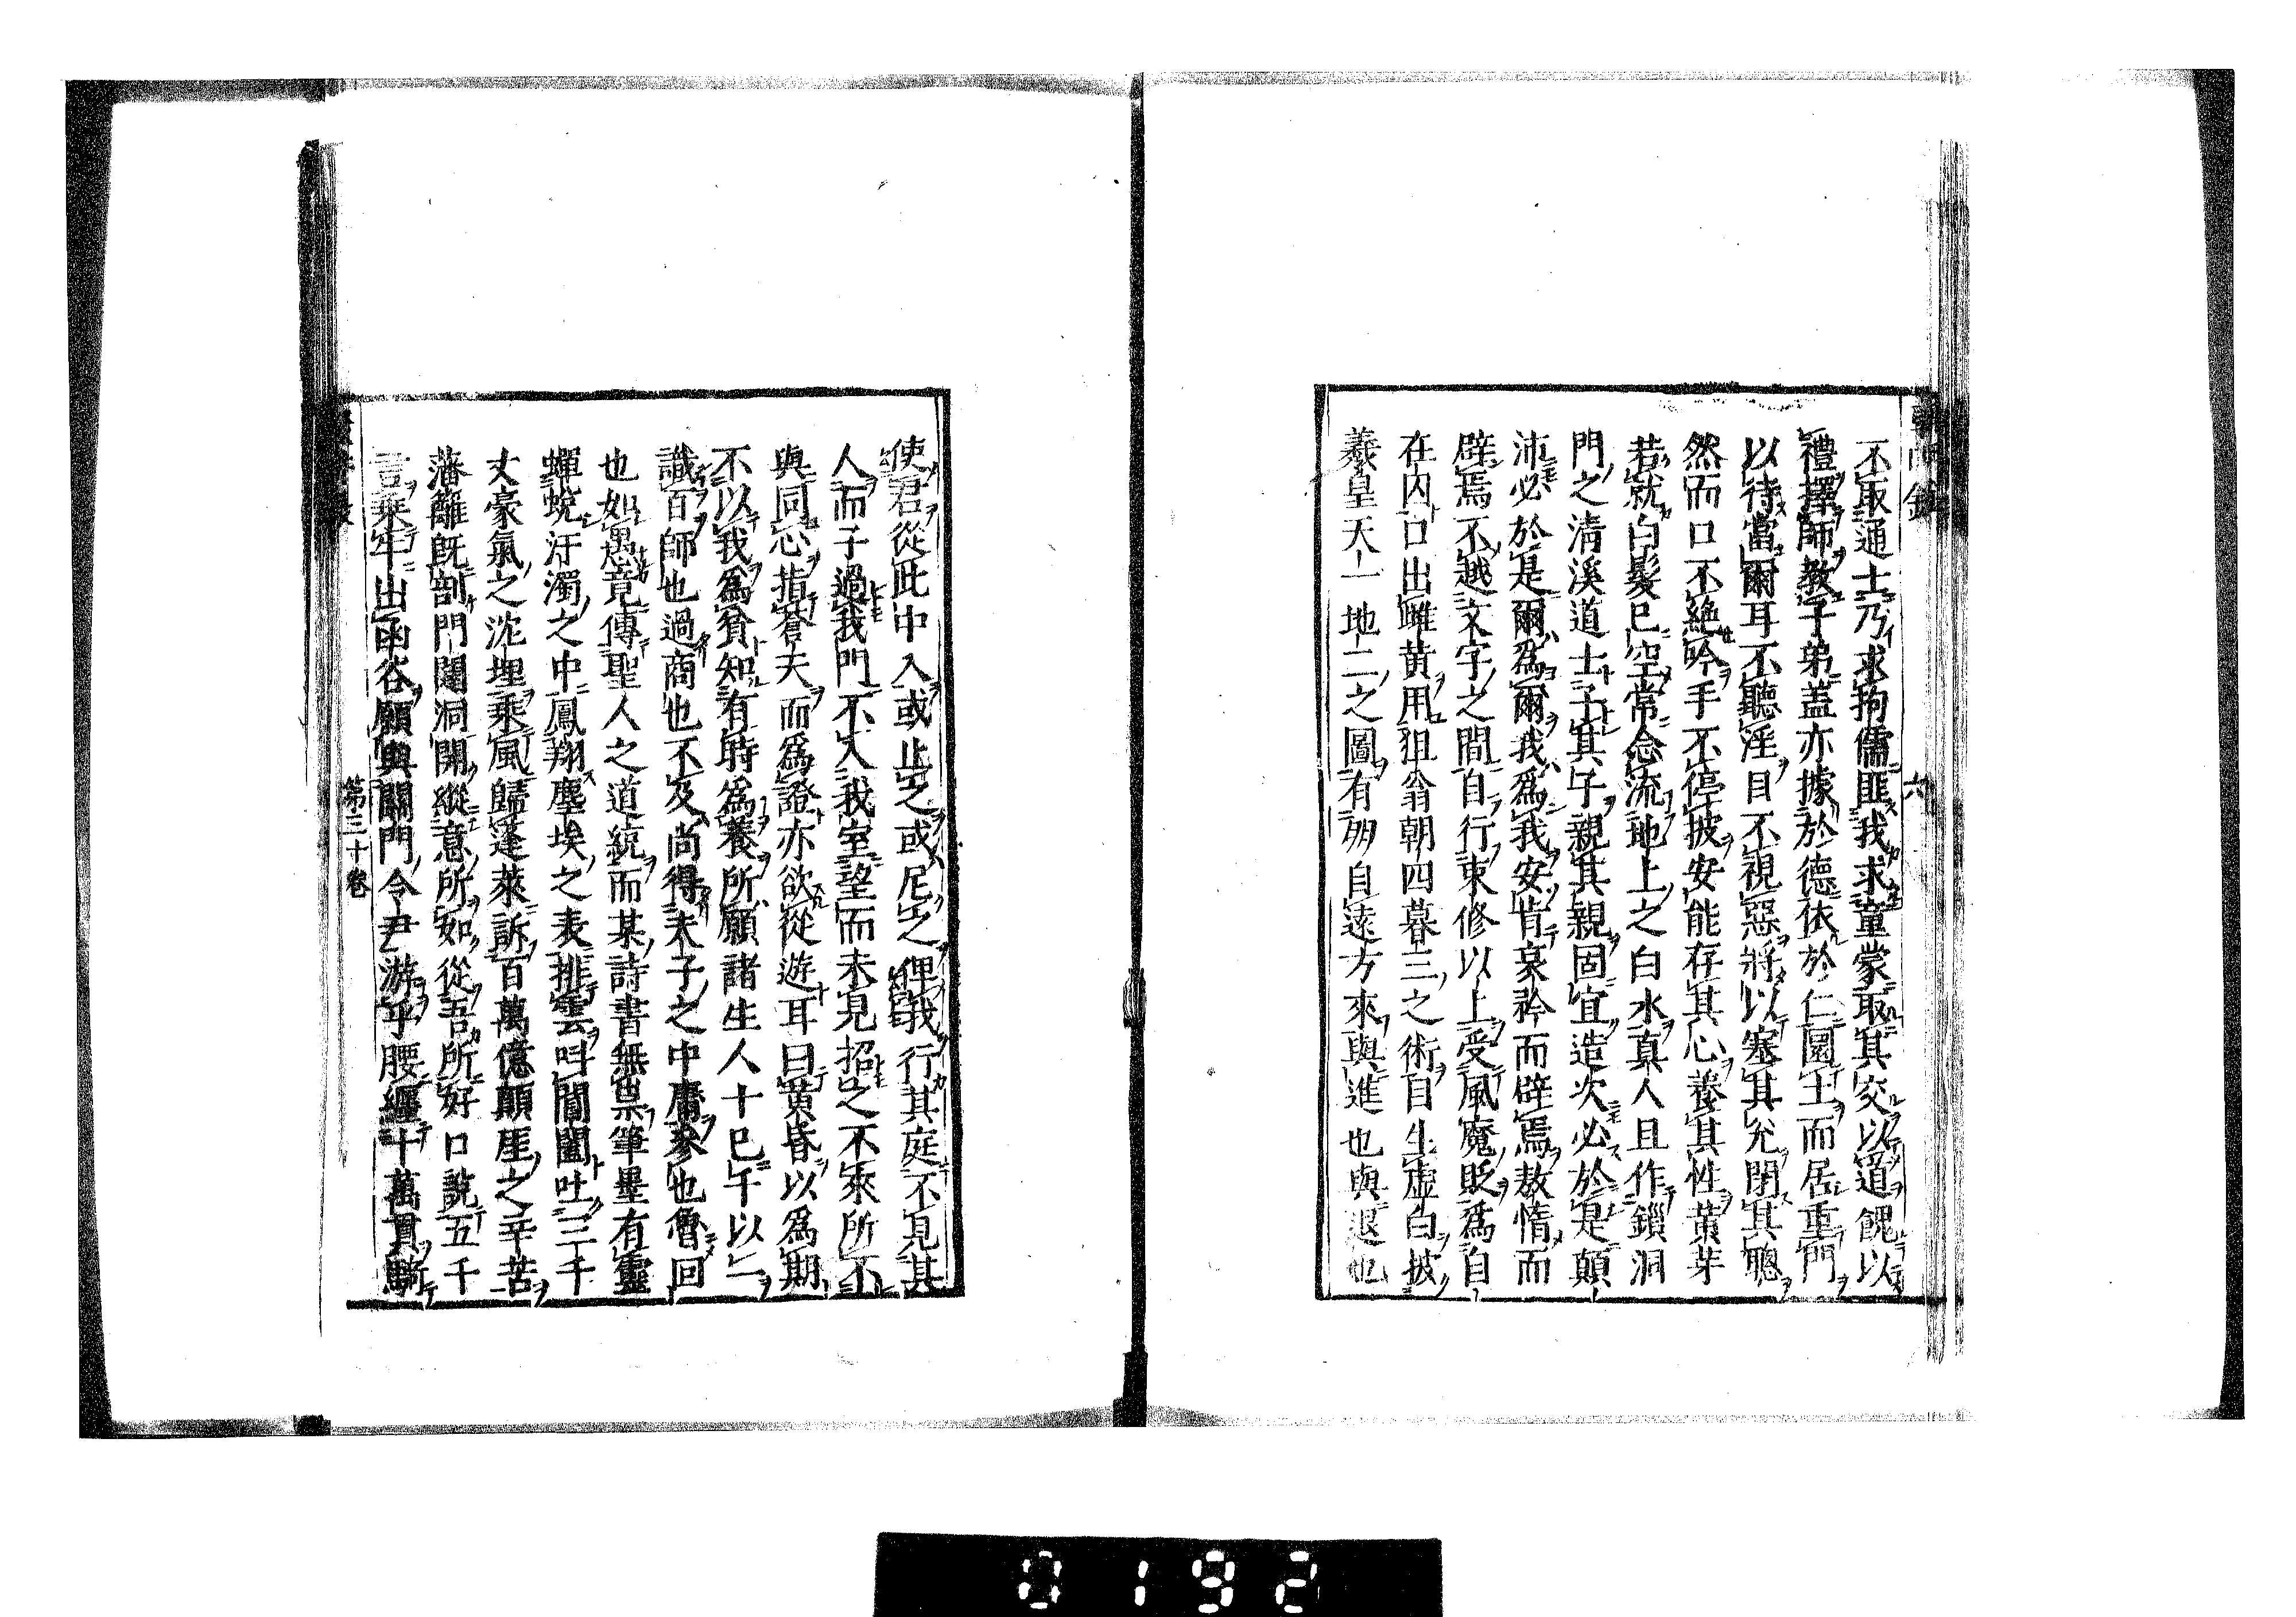 不取通士乃求狗儒匪我求童蒙取其交以道餽以
禮擇師教子弟盖亦據於德依於仁園土而居重門
以待當爾耳不聽淫目不視惡將以塞其兊閉其聰
然而口不絶吟手不停披安能存其心養其性黄芽
若就白髮已空常念流地上之白水真人且作鎖洞
門之清溪道士子其子親其親固宜造次必於是顛
沛必於是爾爲爾我爲我安肯哀矜而辟焉敖惰而
辟焉不越文字之間自行束修以上受風魔貶爲自
在囚口出雌黄用狙翁朝四暮三之術自生虚白披
羲皇天一地二之圖有朋自遠方來與進也與退也
使君從此中入或止之或尼之俾我行其庭不見其
人而子過我門不入我室望而未見招之不來所不
與同心指蒼天而爲證亦欲從遊耳曰黄昏以爲期
不以我爲貧知有時爲養所願諸生人十巳午以一
識百師也過商也不及尚得夫子之中庸參也魯回
也如愚竟傳聖人之道統而某詩書無祟筆墨有靈
蟬蛻汙濁之中鳳翔塵埃之表排雲叫閶闔吐三千
丈豪氣之沈埋乘風歸蓬萊訴百萬億顛崖之辛苦
藩籬既剖門闥洞開縱意所如從吾所好口說五千
言乘牛出函谷願與關門令尹游乎腰纏十萬貫騎
第三十卷
六